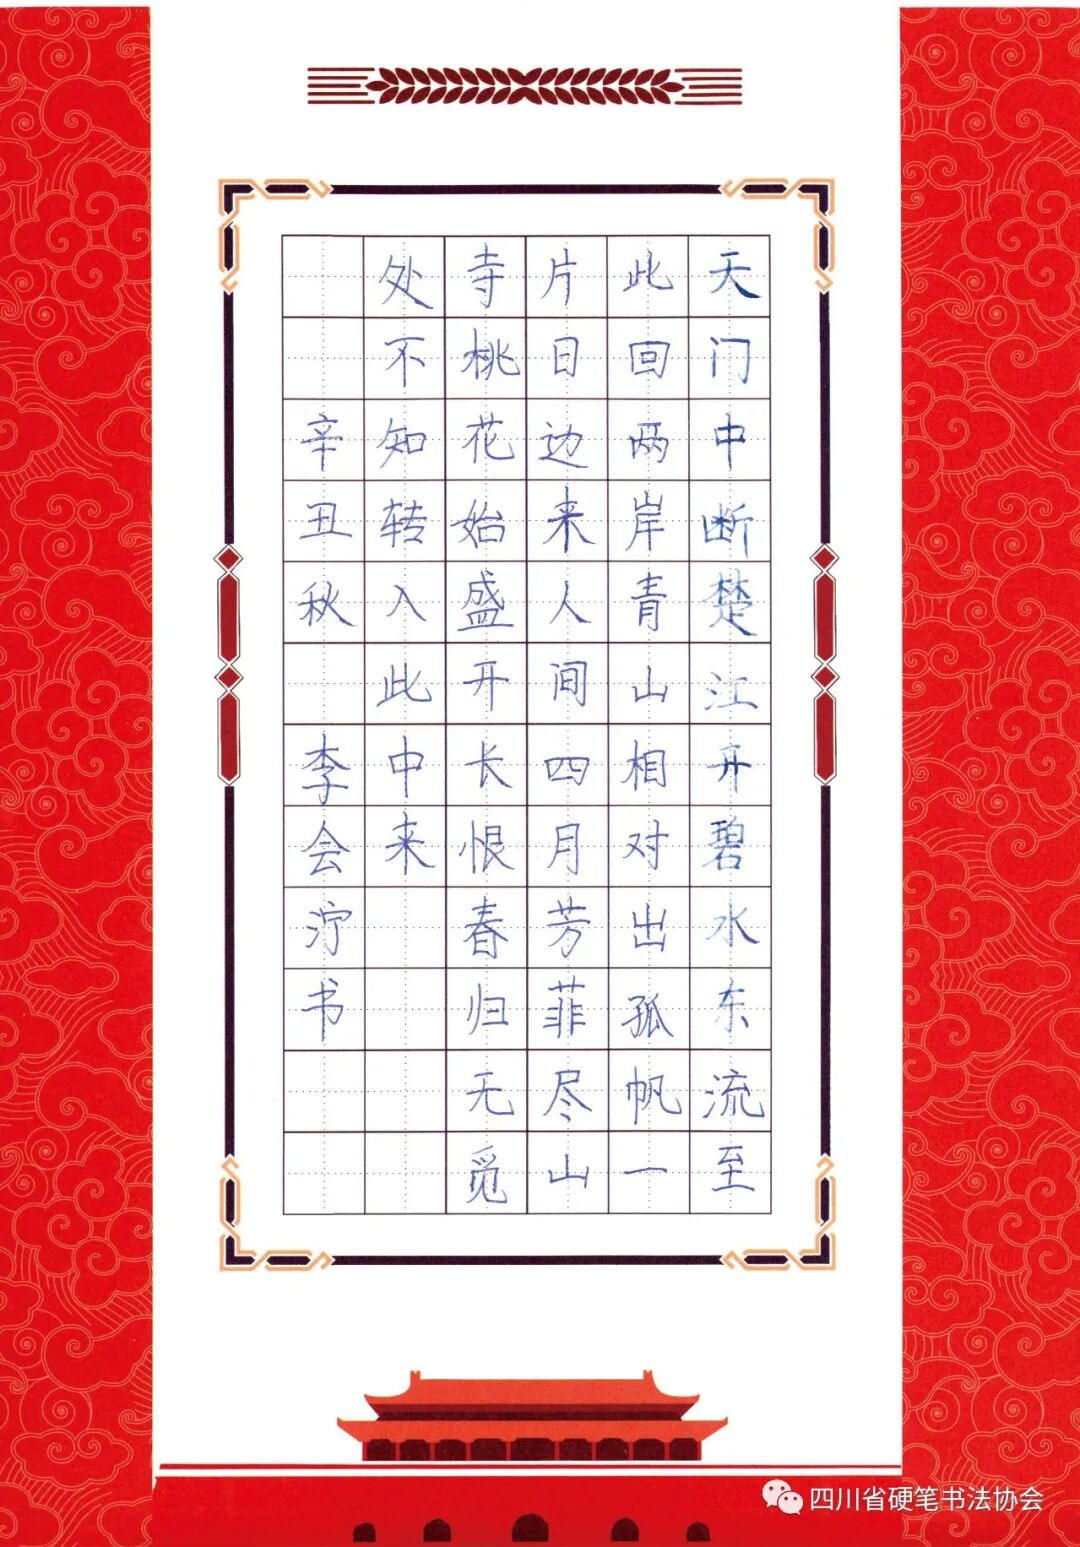 天门中断楚江开碧水东流至
此回两岸青山相对出孤帆一
片日边来人间四月芳菲尽山
寺桃花始盛开长恨春归无觅
处不知转入此中来
辛丑秋 李会书
四川省硬笔书法协会